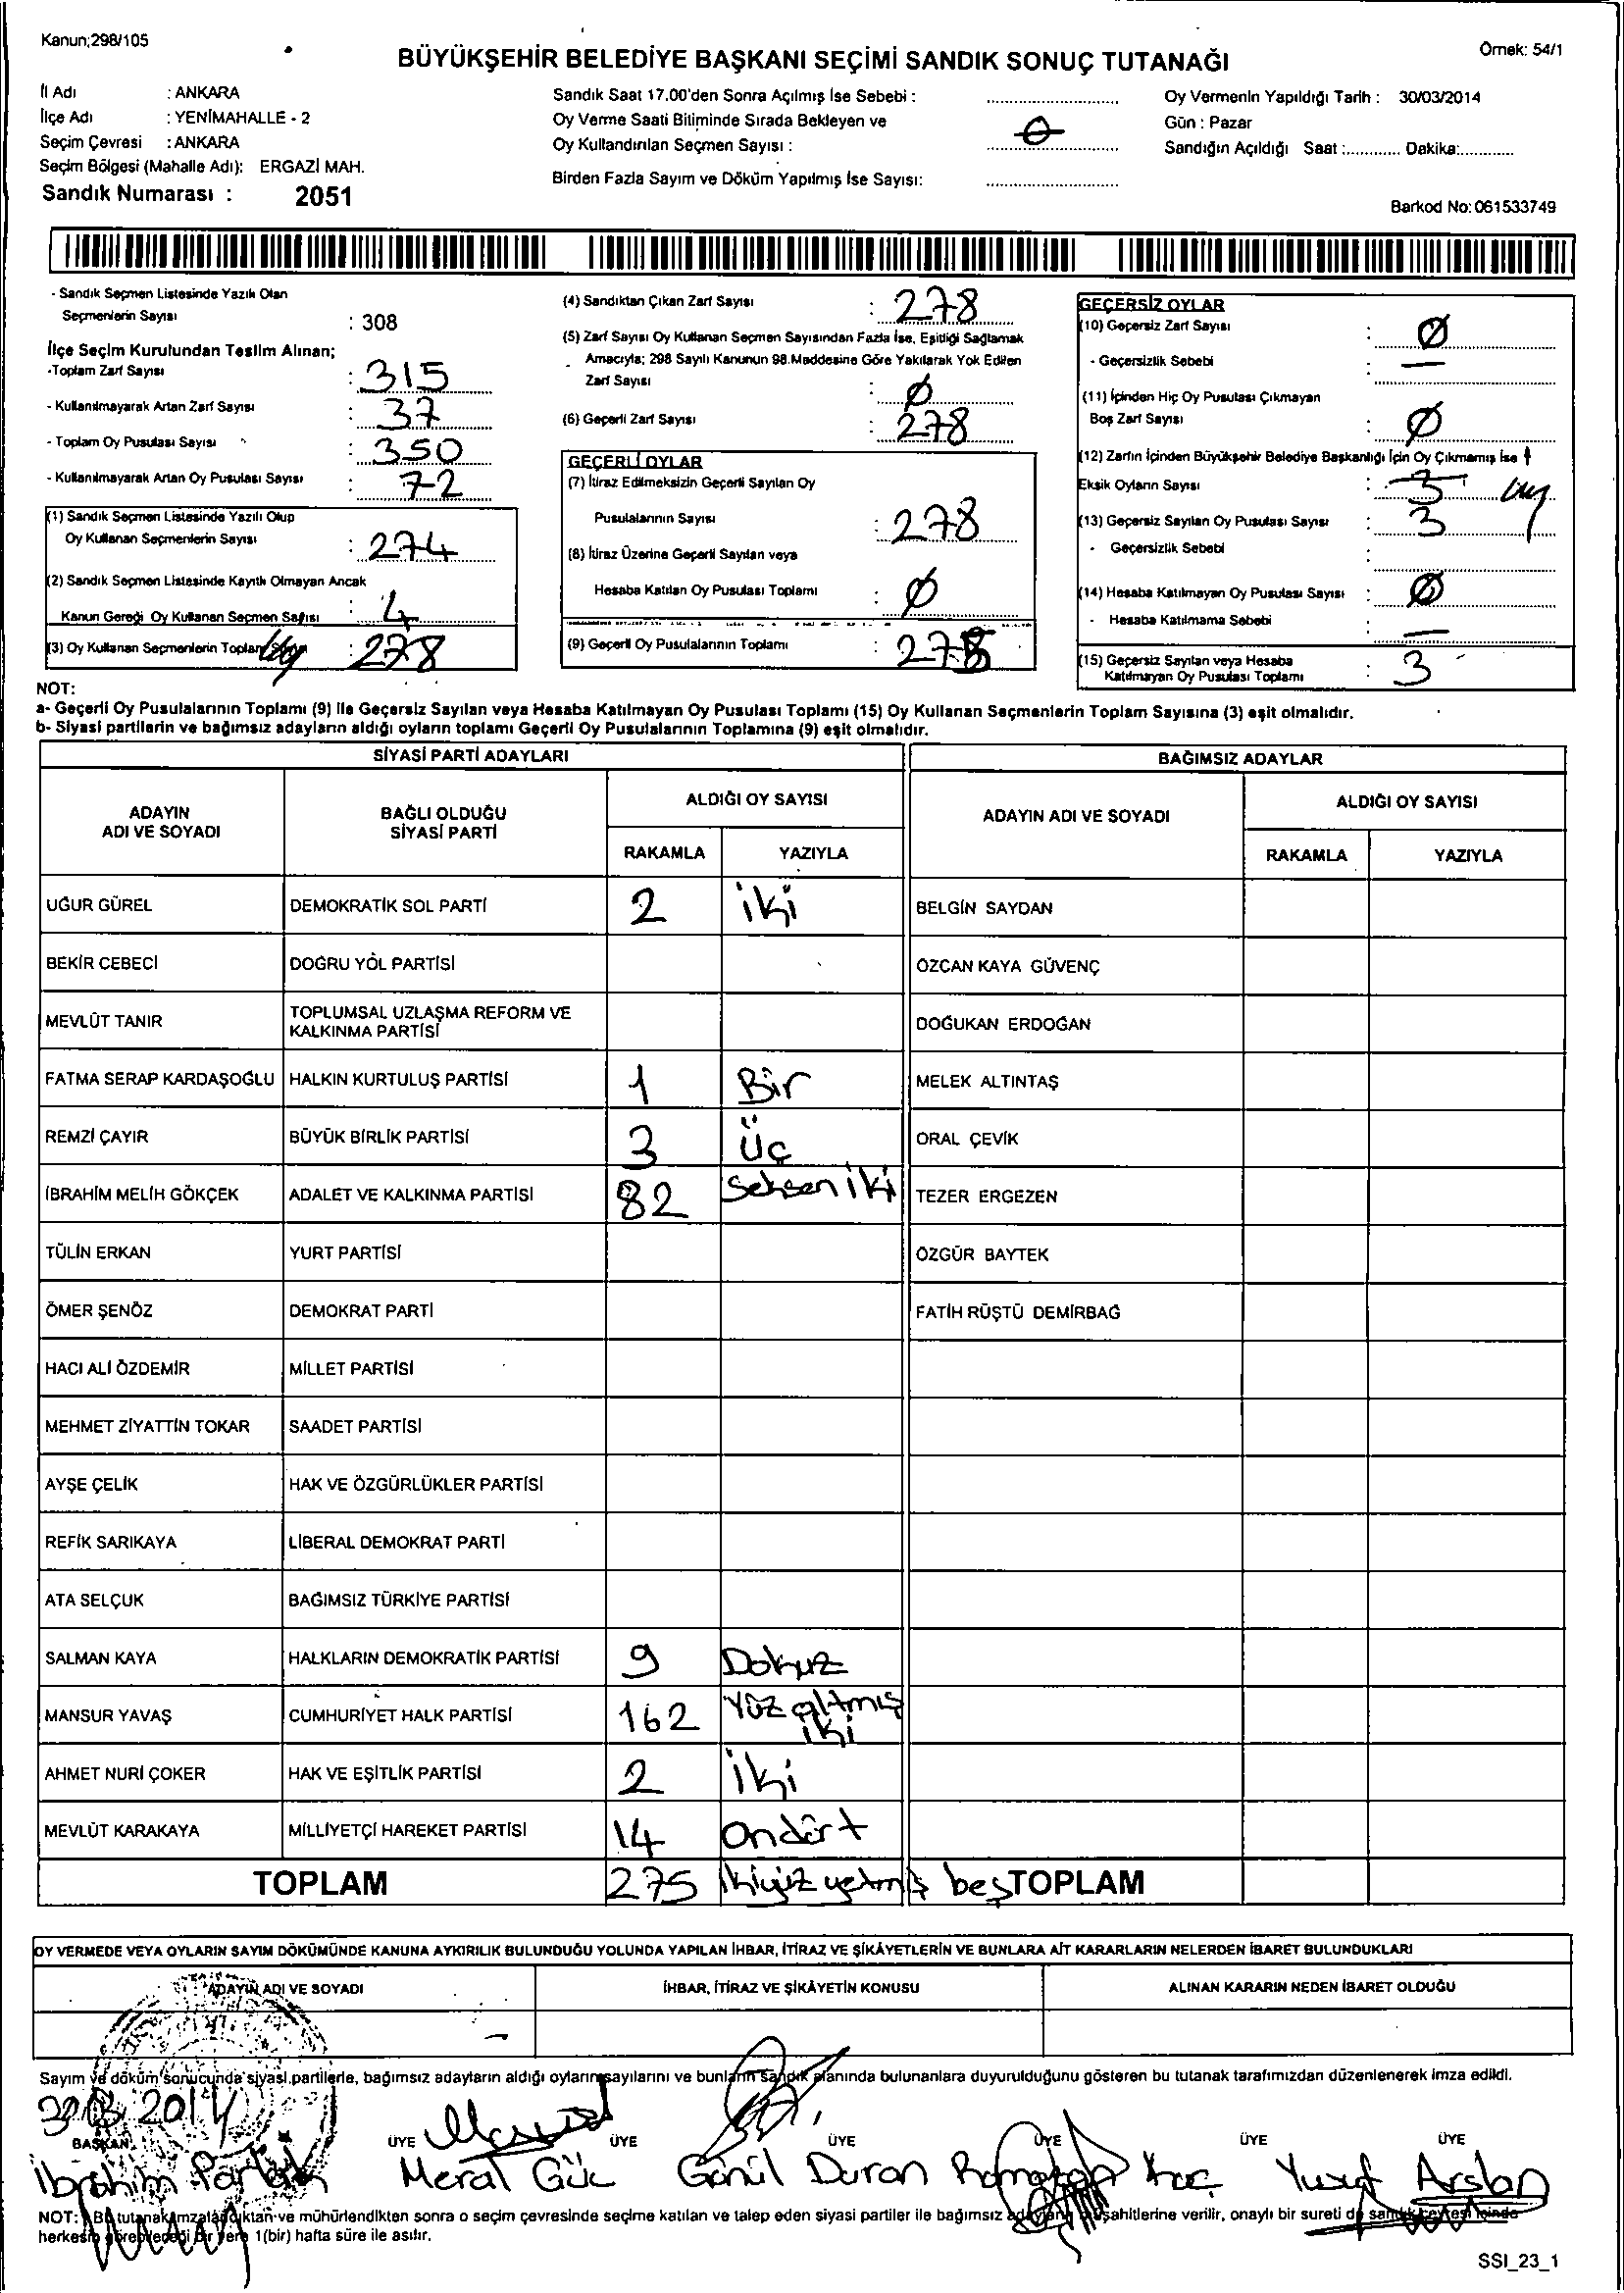 Kanun;298/105
Örnek: 54/1
BÜYÜKŞEHİR BELEDİYE BAŞKANI SEÇİMİ SANDIK SONUÇ TUTANAĞI
İl Adı : ANKARA
İlçe Adı : YENİMAHALLE - 2
Seçim Çevresi : ANKARA
Seçim Bölgesi (Mahalle Adı): ERGAZİ MAH.
Sandık Numarası : 2051
Sandık Saat 17.00'den Sonra Açılmış İse Sebebi :
Oy Verme Saati Bitiminde Sırada Bekleyen ve
Oy Kullandırılan Seçmen Sayısı : 0
Birden Fazla Sayım ve Döküm Yapılmış İse Sayısı:
Oy Vermenin Yapıldığı Tarih : 30/03/2014
Gün : Pazar
Sandığın Açıldığı Saat :............ Dakika:............
Barkod No: 061533749
- Sandık Seçmen Listesinde Yazılı Olan
Seçmenlerin Sayısı : 308
İlçe Seçim Kurulundan Teslim Alınan;
-Toplam Zarf Sayısı : 315
- Kullanılmayarak Artan Zarf Sayısı : 37
- Toplam Oy Pusulası Sayısı : 350
- Kullanılmayarak Artan Oy Pusulası Sayısı : 72
(1) Sandık Seçmen Listesinde Yazılı Olup
Oy Kullanan Seçmenlerin Sayısı : 274
(2) Sandık Seçmen Listesinde Kayıtlı Olmayan Ancak
Kanun Gereği Oy Kullanan Seçmen Sayısı : 4
(3) Oy Kullanan Seçmenlerin Toplam Sayısı : 278
(4) Sandıktan Çıkan Zarf Sayısı : 278
(5) Zarf Sayısı Oy Kullanan Seçmen Sayısından Fazla İse, Eşitliği Sağlamak
Amacıyla; 298 Sayılı Kanunun 98.Maddesine Göre Yakılarak Yok Edilen
Zarf Sayısı : Ø
(6) Geçerli Zarf Sayısı : 278
GEÇERLİ OYLAR
(7) İtiraz Edilmeksizin Geçerli Sayılan Oy
Pusulalarının Sayısı : 278
(8) İtiraz Üzerine Geçerli Sayılan veya
Hesaba Katılan Oy Pusulası Toplamı : Ø
(9) Geçerli Oy Pusulalarının Toplamı : 275
GEÇERSİZ OYLAR
(10) Geçersiz Zarf Sayısı : Ø
- Geçersizlik Sebebi : —
(11) İçinden Hiç Oy Pusulası Çıkmayan
Boş Zarf Sayısı : Ø
(12) Zarfın İçinden Büyükşehir Belediye Başkanlığı İçin Oy Çıkmamış İse
Eksik Oyların Sayısı : 3
(13) Geçersiz Sayılan Oy Pusulası Sayısı : 3
- Geçersizlik Sebebi :
(14) Hesaba Katılmayan Oy Pusulası Sayısı : Ø
- Hesaba Katılmama Sebebi : —
(15) Geçersiz Sayılan veya Hesaba
Katılmayan Oy Pusulası Toplamı : 3
NOT:
a- Geçerli Oy Pusulalarının Toplamı (9) ile Geçersiz Sayılan veya Hesaba Katılmayan Oy Pusulası Toplamı (15) Oy Kullanan Seçmenlerin Toplam Sayısına (3) eşit olmalıdır.
b- Siyasi partilerin ve bağımsız adayların aldığı oyların toplamı Geçerli Oy Pusulalarının Toplamına (9) eşit olmalıdır.
SİYASİ PARTİ ADAYLARI
BAĞIMSIZ ADAYLAR
ADAYIN ADI VE SOYADI
BAĞLI OLDUĞU SİYASİ PARTİ
ALDIĞI OY SAYISI
RAKAMLA YAZIYLA
ADAYIN ADI VE SOYADI
ALDIĞI OY SAYISI
RAKAMLA YAZIYLA
UĞUR GÜREL DEMOKRATİK SOL PARTİ 2 iki BELGİN SAYDAN
BEKİR CEBECİ DOĞRU YOL PARTİSİ ÖZCAN KAYA GÜVENÇ
MEVLÜT TANIR TOPLUMSAL UZLAŞMA REFORM VE KALKINMA PARTİSİ DOĞUKAN ERDOĞAN
FATMA SERAP KARDAŞOĞLU HALKIN KURTULUŞ PARTİSİ 1 Bir MELEK ALTINTAŞ
REMZİ ÇAYIR BÜYÜK BİRLİK PARTİSİ 3 Üç ORAL ÇEVİK
İBRAHİM MELİH GÖKÇEK ADALET VE KALKINMA PARTİSİ 82 Seksen iki TEZER ERGEZEN
TÜLİN ERKAN YURT PARTİSİ ÖZGÜR BAYTEK
ÖMER ŞENÖZ DEMOKRAT PARTİ FATİH RÜŞTÜ DEMİRBAĞ
HACI ALİ ÖZDEMİR MİLLET PARTİSİ
MEHMET ZİYATTİN TOKAR SAADET PARTİSİ
AYŞE ÇELİK HAK VE ÖZGÜRLÜKLER PARTİSİ
REFİK SARIKAYA LİBERAL DEMOKRAT PARTİ
ATA SELÇUK BAĞIMSIZ TÜRKİYE PARTİSİ
SALMAN KAYA HALKLARIN DEMOKRATİK PARTİSİ 9 Dokuz
MANSUR YAVAŞ CUMHURİYET HALK PARTİSİ 162 Yüz altmış iki
AHMET NURİ ÇOKER HAK VE EŞİTLİK PARTİSİ 2 iki
MEVLÜT KARAKAYA MİLLİYETÇİ HAREKET PARTİSİ 14 Ondört
TOPLAM 275 ikiyüz yetmiş beş TOPLAM
OY VERMEDE VEYA OYLARIN SAYIM DÖKÜMÜNDE KANUNA AYKIRILIK BULUNDUĞU YOLUNDA YAPILAN İHBAR, İTİRAZ VE ŞİKÂYETLERİN VE BUNLARA AİT KARARLARIN NELERDEN İBARET BULUNDUKLARI
ADAYIN ADI VE SOYADI İHBAR, İTİRAZ VE ŞİKÂYETİN KONUSU ALINAN KARARIN NEDEN İBARET OLDUĞU
Sayım ve döküm sonucunda siyasi partilerle, bağımsız adayların aldığı oyların sayılarını ve bunların sandık alanında bulunanlara duyurulduğunu gösteren bu tutanak tarafımızdan düzenlenerek imza edildi.
30.03.2014
BAŞKAN ÜYE ÜYE ÜYE ÜYE ÜYE ÜYE
ibrahim Meral Güç Gönül Duran Ramazan Koç Yusuf Arslan
NOT: Bu tutanak imzalandıktan ve mühürlendikten sonra o seçim çevresinde seçime katılan ve talep eden siyasi partiler ile bağımsız adayların müşahitlerine verilir, onaylı bir sureti de sandık çevresi içinde
herkesin görebileceği bir yere 1(bir) hafta süre ile asılır.
SSI_23_1